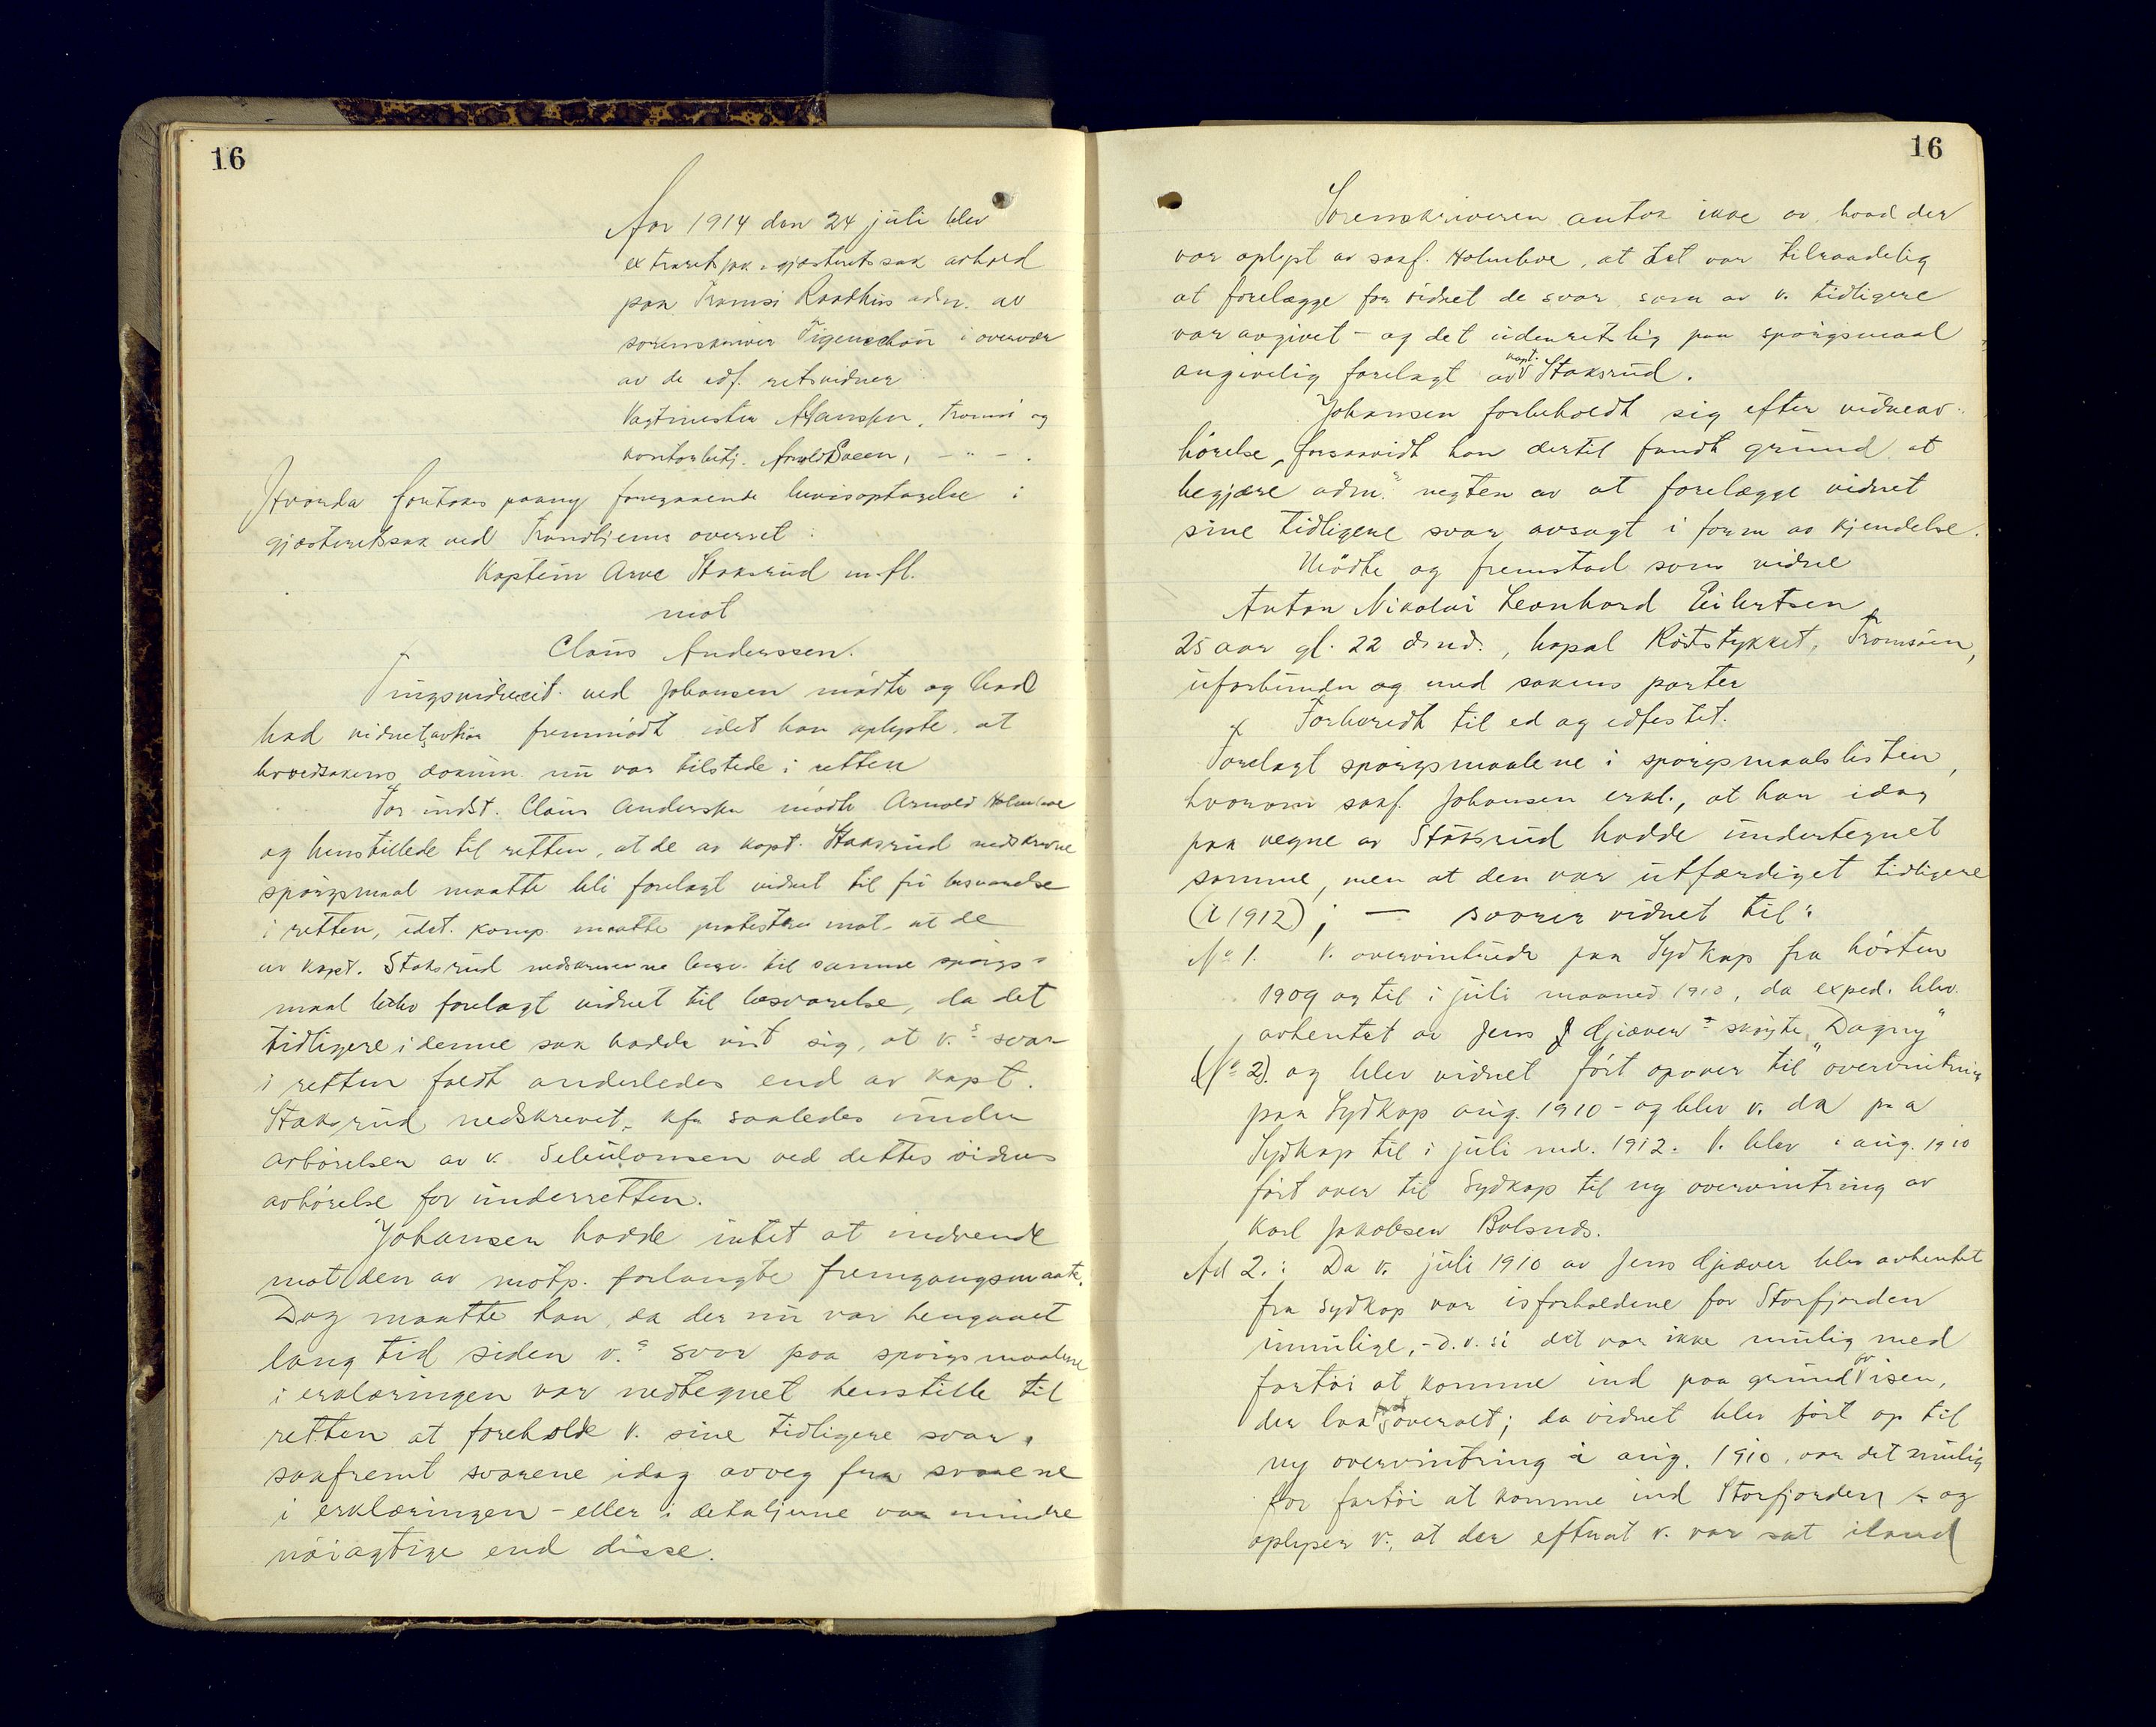 16
Aar 1914 den 24 juli blev
extraretspk. gjæsteretssak avhold
paa Tromsö Raadhus adm. av
sorenskriver Tigenschöu i overvær
av de edf. retsvidner
Vagtmester Hansen, Tromsö og
kontorbetj. Arnold Saeen, - " - .
Hvorda foretokes paany foregaaende bevisoptagelse i
gjæsteretssak ved Trondhjems overret:
Kaptein Arve Staksrud m. fl.
mot
Claus Anderssen.
Tingsvidnecit. ved Johansen mödte og bad
had vidnet fremmödt idet han oplyste, at
hovedsakens dokum. nu var tilstede i retten
For indst. Claus Andersen mödte Arnold Holmboe
og henstillede til retten, at de av kapt. Staksrud nedskrevne
spörgsmaal maatte bli forelagt vidnet til fri besvarelse
i retten, idet komp. maatte protestere mot at de
av kapt. Staksrud nedskrevne besv. til samme spörgs-
maal blev forelagt vidnet til besvarelse, da det
tidligere i denne sak hadde vist sig, at v.s svar
i retten faldt anderledes end av kapt.
Staksrud nedskrevet, kfr saaledes under
avhörelsen av v. Sebulonsen ved dettes vidnes
avhörelse for underretten.
Johansen hadde intet at indvende
mot den av motp. forlangte fremgangsmaate.
Dog maatte han, da der nu var hengaaet
lang tid siden v.s svar paa spörgsmaalene
i erklæringen var nedtegnet henstille til
retten at foreholde v. sine tidligere svar,
saafremt svarene idag avveg fra svarene
i erklæringen - eller i detaljerne var mindre
nöiagtige end disse.
16
Sorenskriveren antok ikke av hvad der
var oplyst av sakf. Holmboe, at det var tilraadelig
at forelægge for vidnet de svar som av v. tidligere
var avgivet - og det udenretslig paa spörgsmaal
angivelig forelagt av kapt. Staksrud.
Johansen forbeholdt sig efter vidneav-
hörelse, forsaavidt han dertil fandt grund at
begjære adm.s negten av at forelægge vidnet
sine tidligere svar avsagt i form av kjendelse.
Mödte og fremstod som vidne
Anton Nikolai Leonhard Eilertsen
25 aar gl. 22 dsmd., bopal Rödstykket, Tromsöen,
uforbunden og med sakens parter
Forberedt til ed og edfestet.
Forelagt spörgsmaalene i spörgsmaalslisten,
hvorom sakf. Johansen erkl., at han idag
paa vegne av Staksrud hadde undertegnet
samme, men at den var utfærdiget tidligere
(i 1912); — svarer vidnet til:
No 1. V. overvintrede paa Sydkap fra hösten
1909 og til i juli maaned 1910, da exped. blev
avhentet av Jens Gjæver's sköyte "Dagny"
(No 2). og blev vidnet fört opover til overvintring
paa Sydkap aug. 1910 - og blev v. da paa
Sydkap til i juli md. 1912. V. blev i aug. 1910
fört over til Sydkap til ny overvintring av
Karl Jakobsen Balsnds.
Ad 2.: Da v. juli 1910 av Jens Gjæver blev avhentet
fra Sydkap var isforholdene for Storfjorden
umulige, - d. v. s: det var ikke mulig med
fartöi at komme ind paa grund av isen,
der laa overalt; da vidnet blev fört op til
ny overvintring i aug. 1910, var det mulig
for fartöi at komme ind Storfjorden - og
oplyser v., at der efterat v. var sat iland